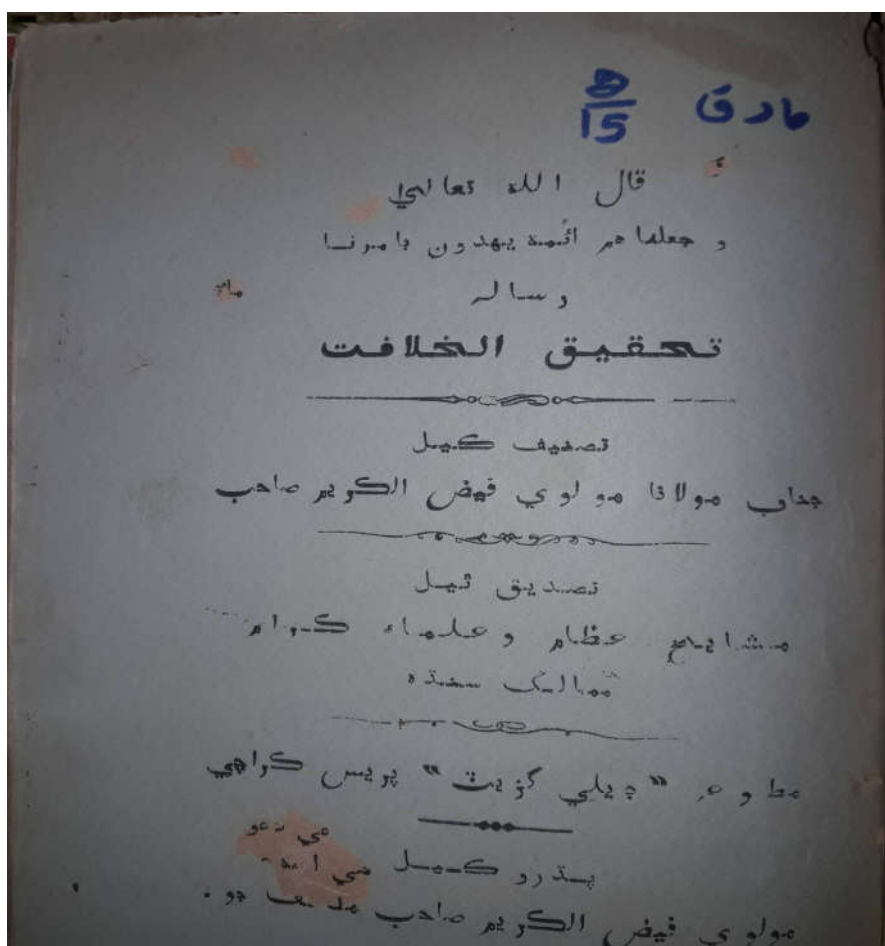 15
قال الله تعالي
و جعلناهم ائمة يهدون بامرنا
رسالہ
تحقيق الخلافت
تصنيف ڪيل
جناب مولانا مولوي فيض الڪريم صاحب
تصديق ٿيل
مشايخ عظام و علماء ڪرام
ممالڪ سنڌه
مطبوعہ "ڊيلي گزيٽ" پريس ڪراچي
پڌرو ڪيل
مولوي فيض الڪريم صاحب جو .